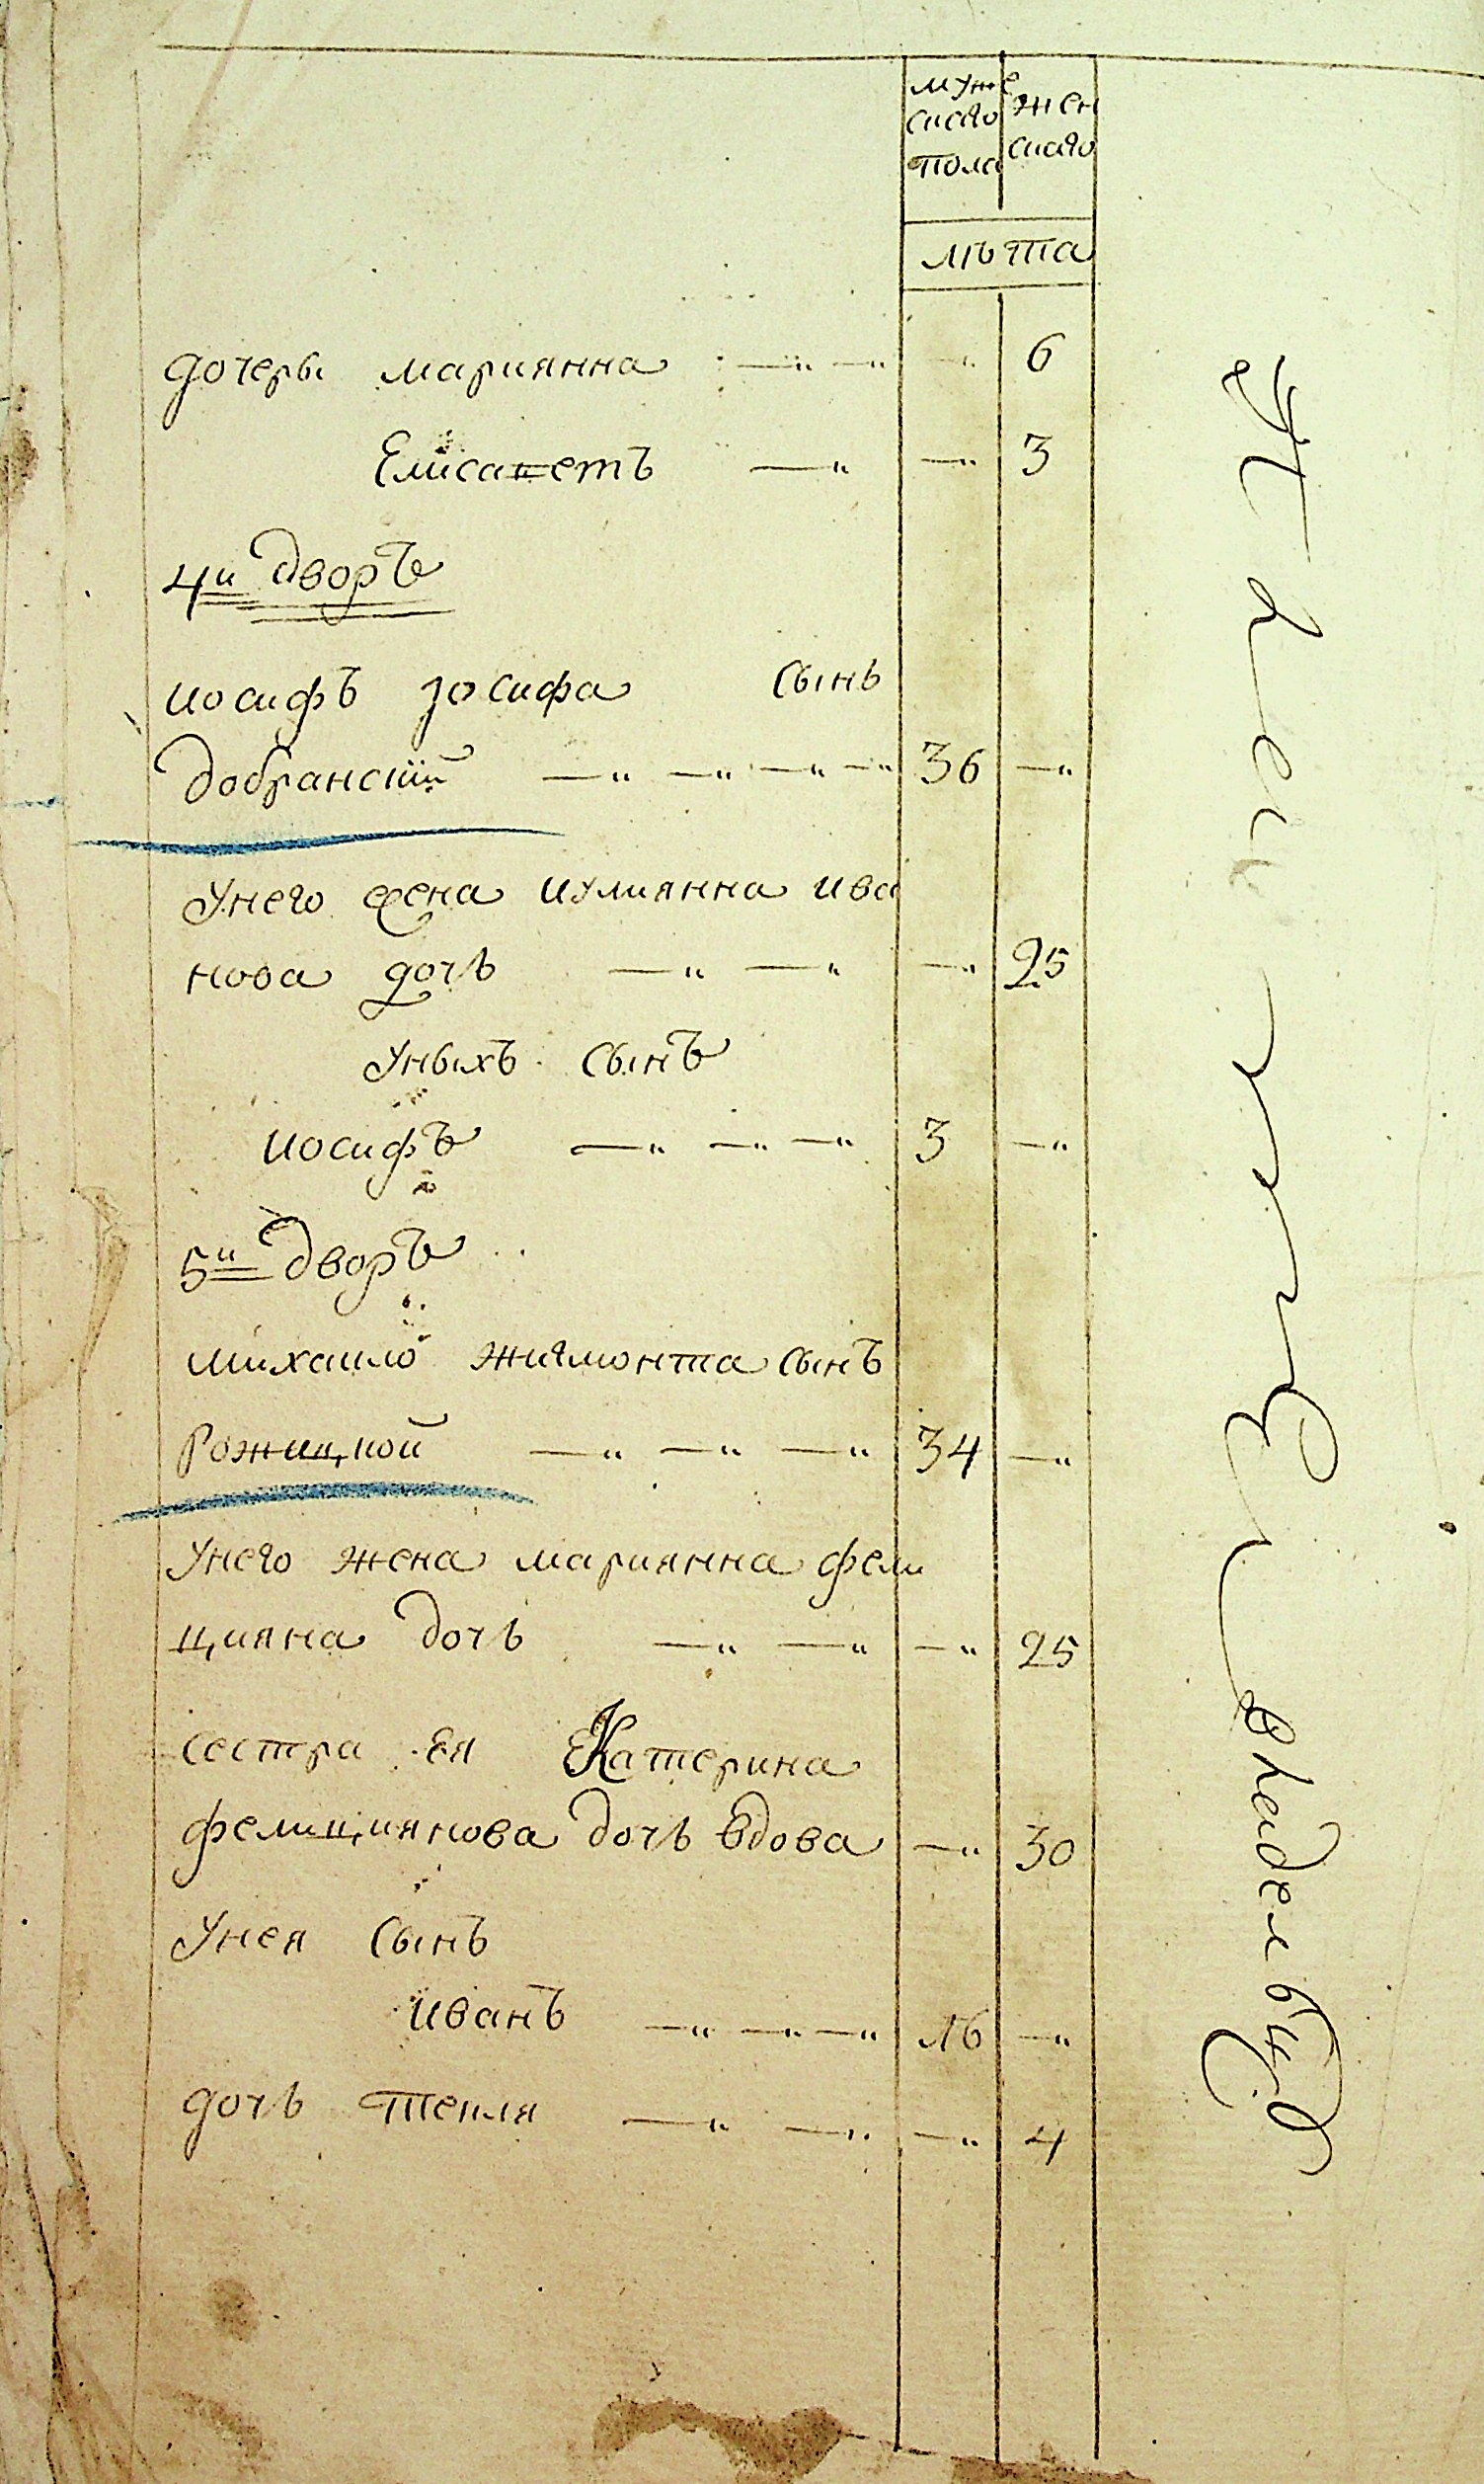 муже
скаго
пола
жен
скаго
лѣта
дочеры мариянна 6
Елисаветъ 3
4й дворъ
иосифъ иосифа сынъ
добранскій 36
Унего жена иулиянна ива
нова дочь 25
Уныхъ сынъ
иосифъ 3
5й дворъ
михаило жигмонта сынъ
Рожицкой 34
Унего жена мариянна фели
цияна дочь 25
сестра ея Катерина
фелициянова дочь вдова 30
Унея сынъ
иванъ 16
дочь текля 4